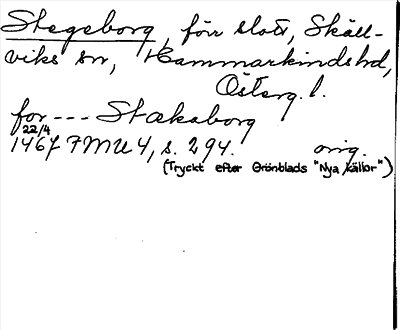 Stegeborg, förr slott, Skäll-
viks sn, Hammarkinds hd,
Österg. l.
for --- Stækaborg
22/4
1467 FMU 4, s. 294. orig.
(Tryckt efter Grönblads "Nya källor")